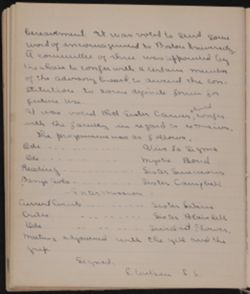 bereavement. It was voted to send some
word of encouragement to Bates University
A committee of three was appointed by
the chair to confer with a certain member
of the advisory board to amend the con-
stitution to some definite form for
future use.
It was voted that Sister Carver, confer
with the faculty in regard to
The programme was as follows:
Ode
Ode Mystic Bond
Reading Sister
Banjo Solo Sister Campbell
Intermission.
Current Events Sister
Critic Sister Blaisdell
Ode
Meeting adjourned with the yell and the
grip.
Signed,
E. S. S.